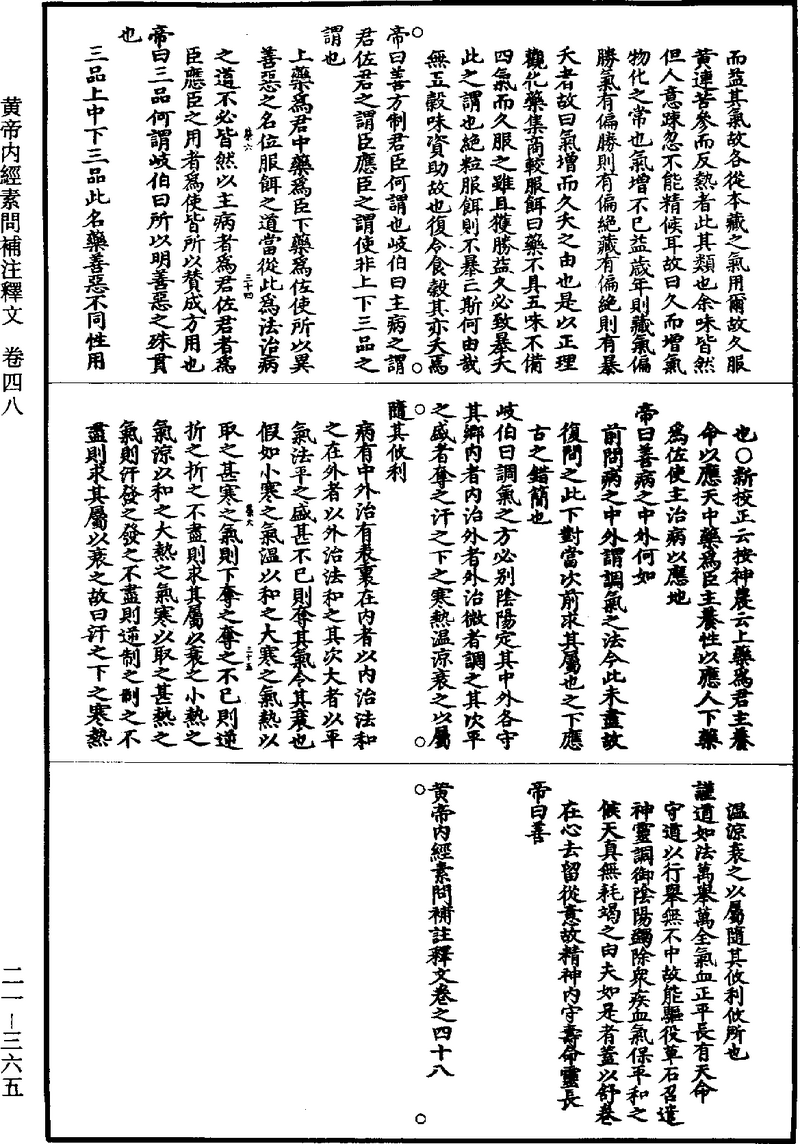 黃帝內經素問補注釋文　卷四八
二一—三六五
而益其氣故各從本藏之氣用爾故久服
黃連苦參而反熱者此其類也余味皆然
但人意踈忽不能精候耳故曰久而增氣
物化之常也氣增不已益歲年則藏氣偏
勝氣有偏勝則有偏絕藏有偏絕則有暴
夭者故曰氣增而久夭之由也是以正理
觀化藥集商較服餌曰藥不具五味不備
四氣而久服之雖且獲勝益久必致暴夭
此之謂也絕粒服餌則不暴亡斯何由哉
無五穀味資助故也復令食穀其亦夭焉
帝曰善方制君臣何謂也岐伯曰主病之謂
君佐君之謂臣應臣之謂使非上下三品之
謂也
上藥爲君中藥爲臣下藥爲佐使所以異
善惡之名位服餌之道當從此爲法治病
藥六
三十四
之道不必皆然以主病者爲君佐君者爲
臣應臣之用者爲使皆所以贊成方用也
帝曰三品何謂岐伯曰所以明善惡之殊貫
也
三品上中下三品此名藥善惡不同性用
也○新校正云按神農云上藥爲君主養
命以應天中藥爲臣主養性以應人下藥
爲佐使主治病以應地
帝曰善病之中外何如
前問病之中外謂調氣之法今此未盡故
復問之此下對當次前求其屬也之下應
古之錯簡也
岐伯曰調氣之方必別陰陽定其中外各守
其鄉內者內治外者外治微者調之其次平
之盛者奪之汗之下之寒熱溫涼衰之以屬
隨其攸利
病有中外治有表裏在內者以內治法和
之在外者以外治法和之其次大者以平
氣法平之盛甚不已則奪其氣令其衰也
假如小寒之氣溫以和之大寒之氣熱以
藥六
三十五
取之甚寒之氣則下奪之奪之不已則逆
折之折之不盡則求其屬以衰之小熱之
氣涼以和之大熱之氣寒以取之甚熱之
氣則汗發之發之不盡則逆制之制之不
盡則求其屬以衰之故曰汗之下之寒熱
溫涼衰之以屬隨其攸利攸所也
謹道如法萬舉萬全氣血正平長有天命
守道以行舉無不中故能驅役草石召遣
神靈調御陰陽蠲除衆疾血氣保平和之
候天真無耗竭之由夫如是者蓋以舒卷
在心去留從意故精神內守壽命靈長
帝曰善
黃帝內經素問補註釋文卷之四十八